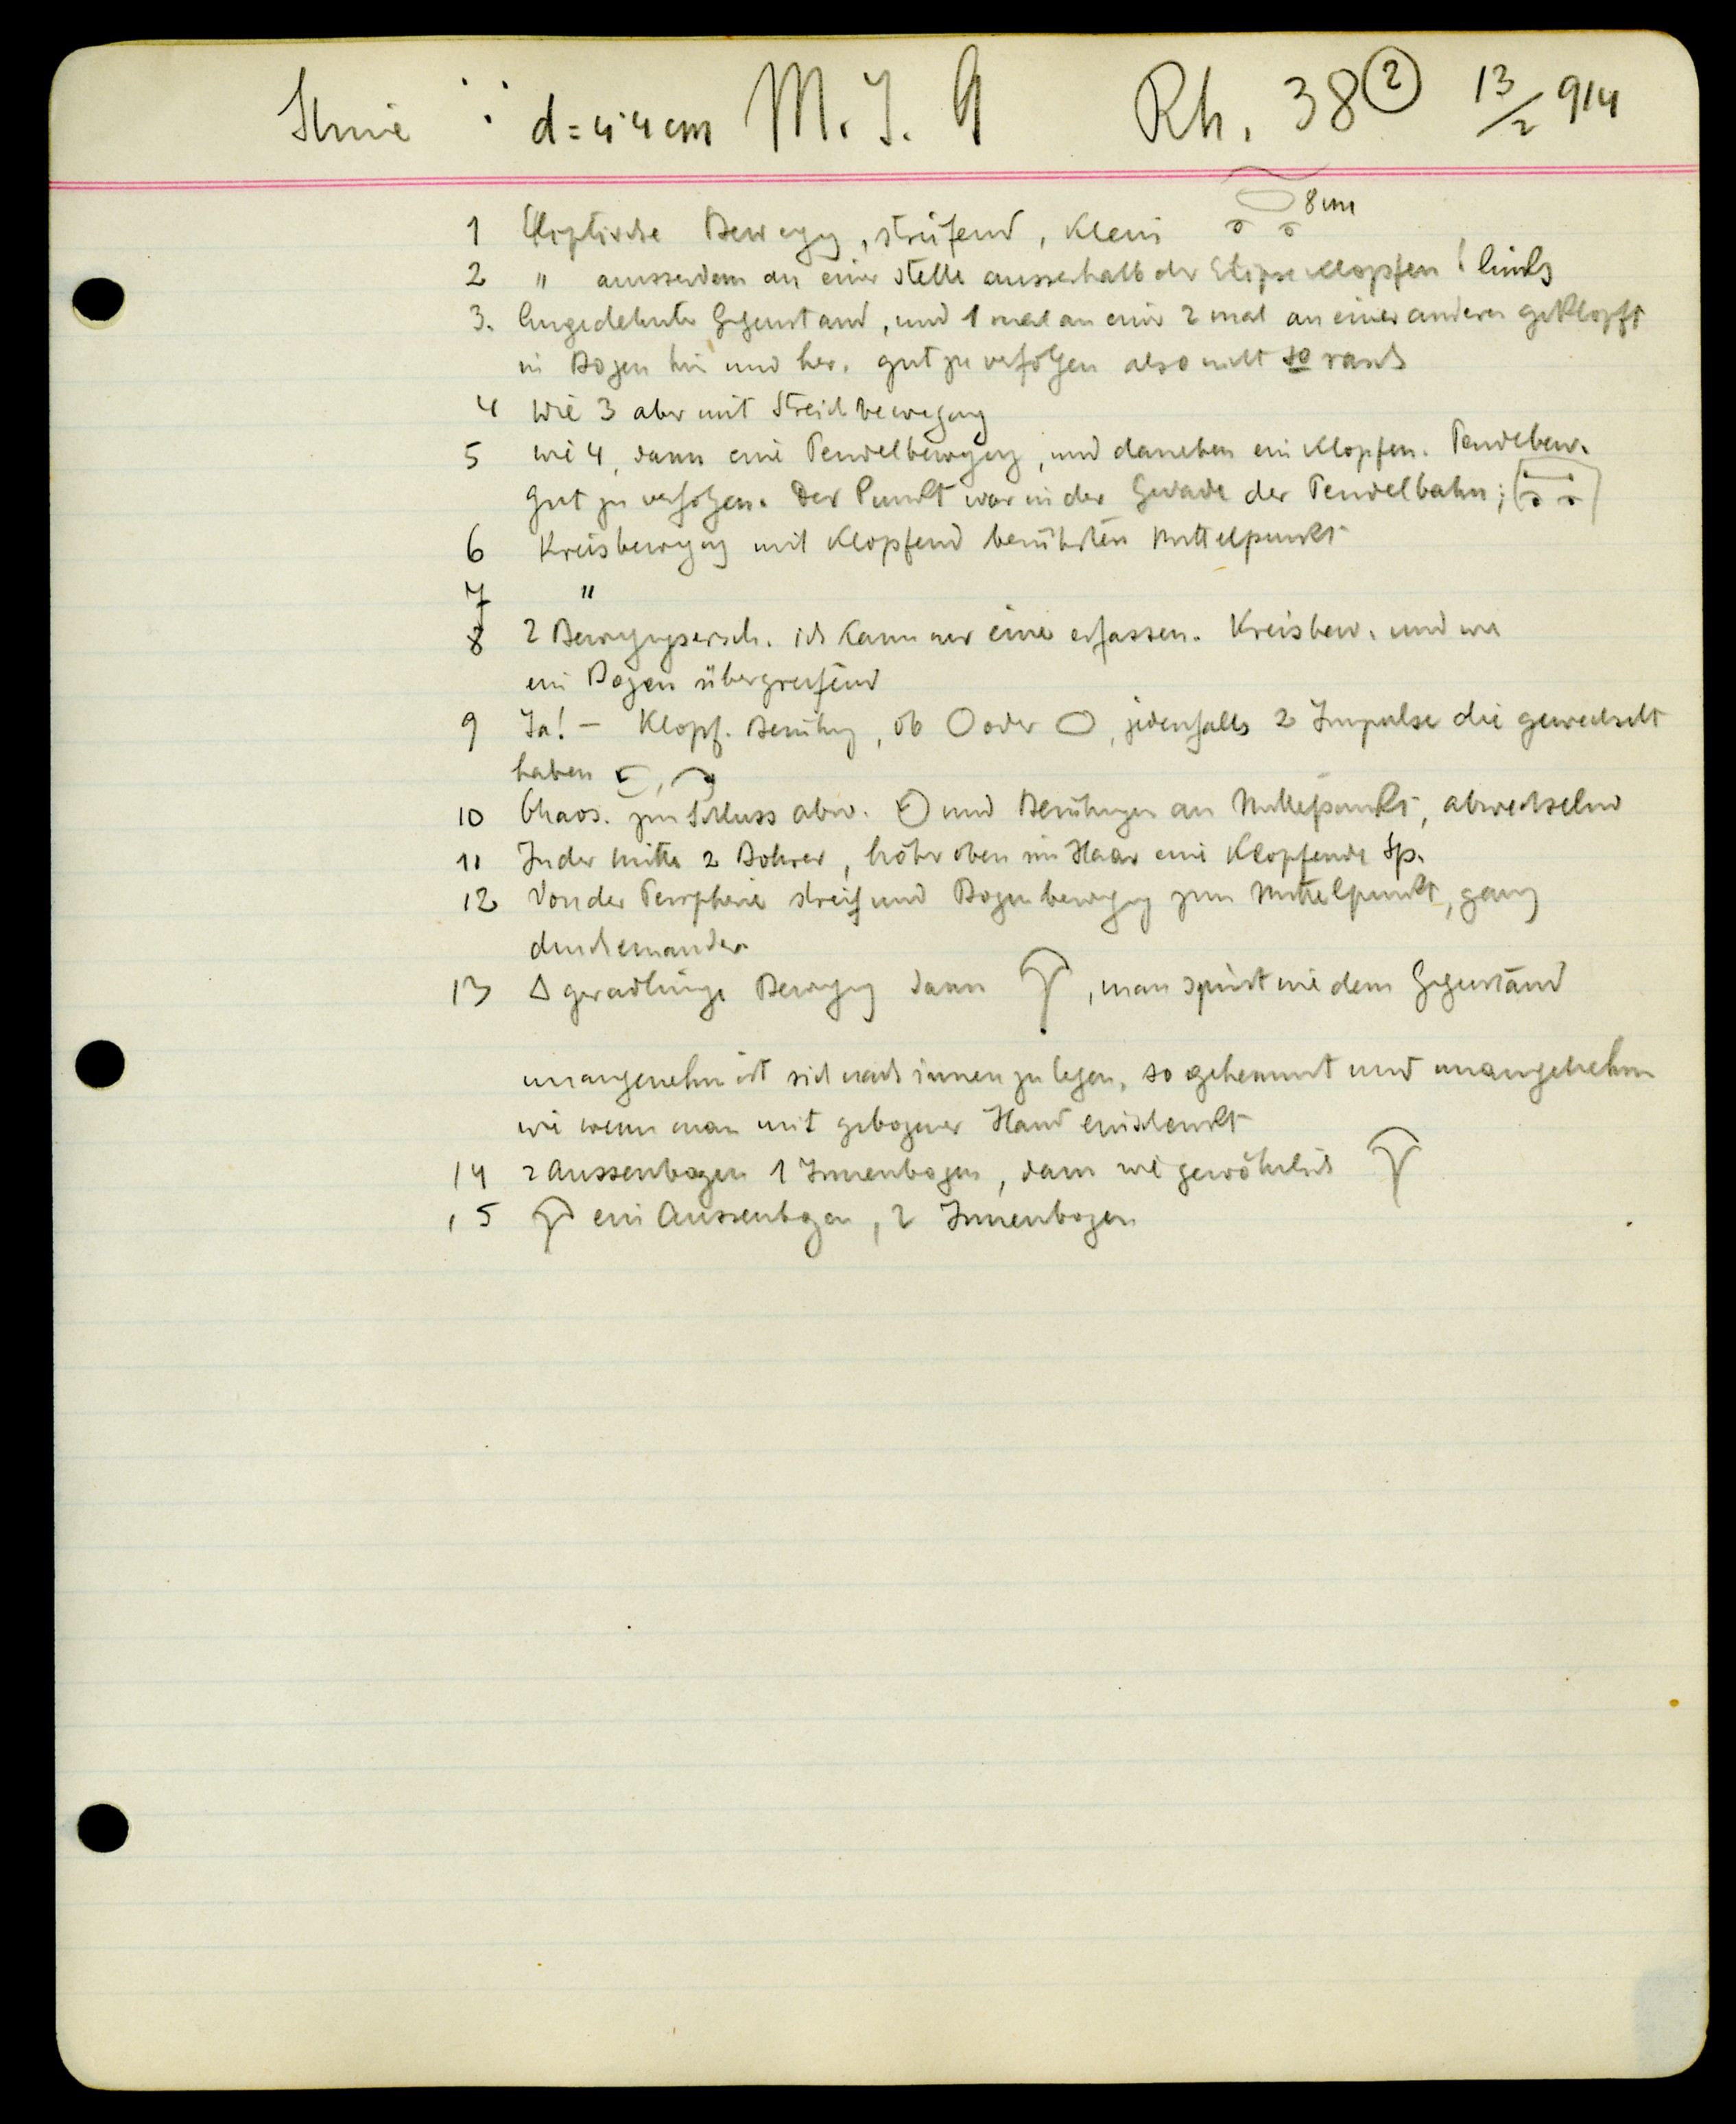 Stirne d = 4·4 cm M. J. 9 Rh. 38 ② 13/2 914
8 cm
1 Eliptische Bewegung, streifend, klein
2 " ausserdem an einer Stelle ausserhalb der Elipse klopfen ! links
3. Ausgedehnter Gegenstand, und 1 mal an einer 2 mal an einer anderen geklopft
in Bogen hin und her. gut zu verfolgen also nicht so rasch
4 Wie 3 aber mit Streichbewegung
5 wie 4, dann eine Pendelbewegung, und daneben ein Klopfen. Pendelbew.
gut zu verfolgen. Der Punkt war in der Gerade der Pendelbahn;
6 Kreisbewegung mit Klopfend berührten Mittelpunkt
7 "
8 2 Bewegungsersch. ich kann nur eine erfassen. Kreisbew. und wie
ein Bogen übergreifend
9 Ja! – Klopf. Berührung, ob oder , jedenfalls 2 Impulse die gewechselt
haben
10 Chaos. zum Schluss abw. und Berührungen am Mittelpunkt, abwechselnd
11 In der Mitte 2 Bohrer, höher oben im Haar eine Klopfende Sp.
12 Von der Peripherie streif und Bogenbewegung zum Mittelpunkt, ganz
durcheinander
13 Δ geradlinige Bewegung dann , man spürt wie dem Gegenstand
unangenehm ist sich nach innen zu legen, so gehemmt und unangenehm
wie wenn man mit gebogener Hand einschenkt
14 2 Aussenbogen 1 Innenbogen, dann wie gewöhnlich
15 ein Aussenbogen, 2 Innenbogen